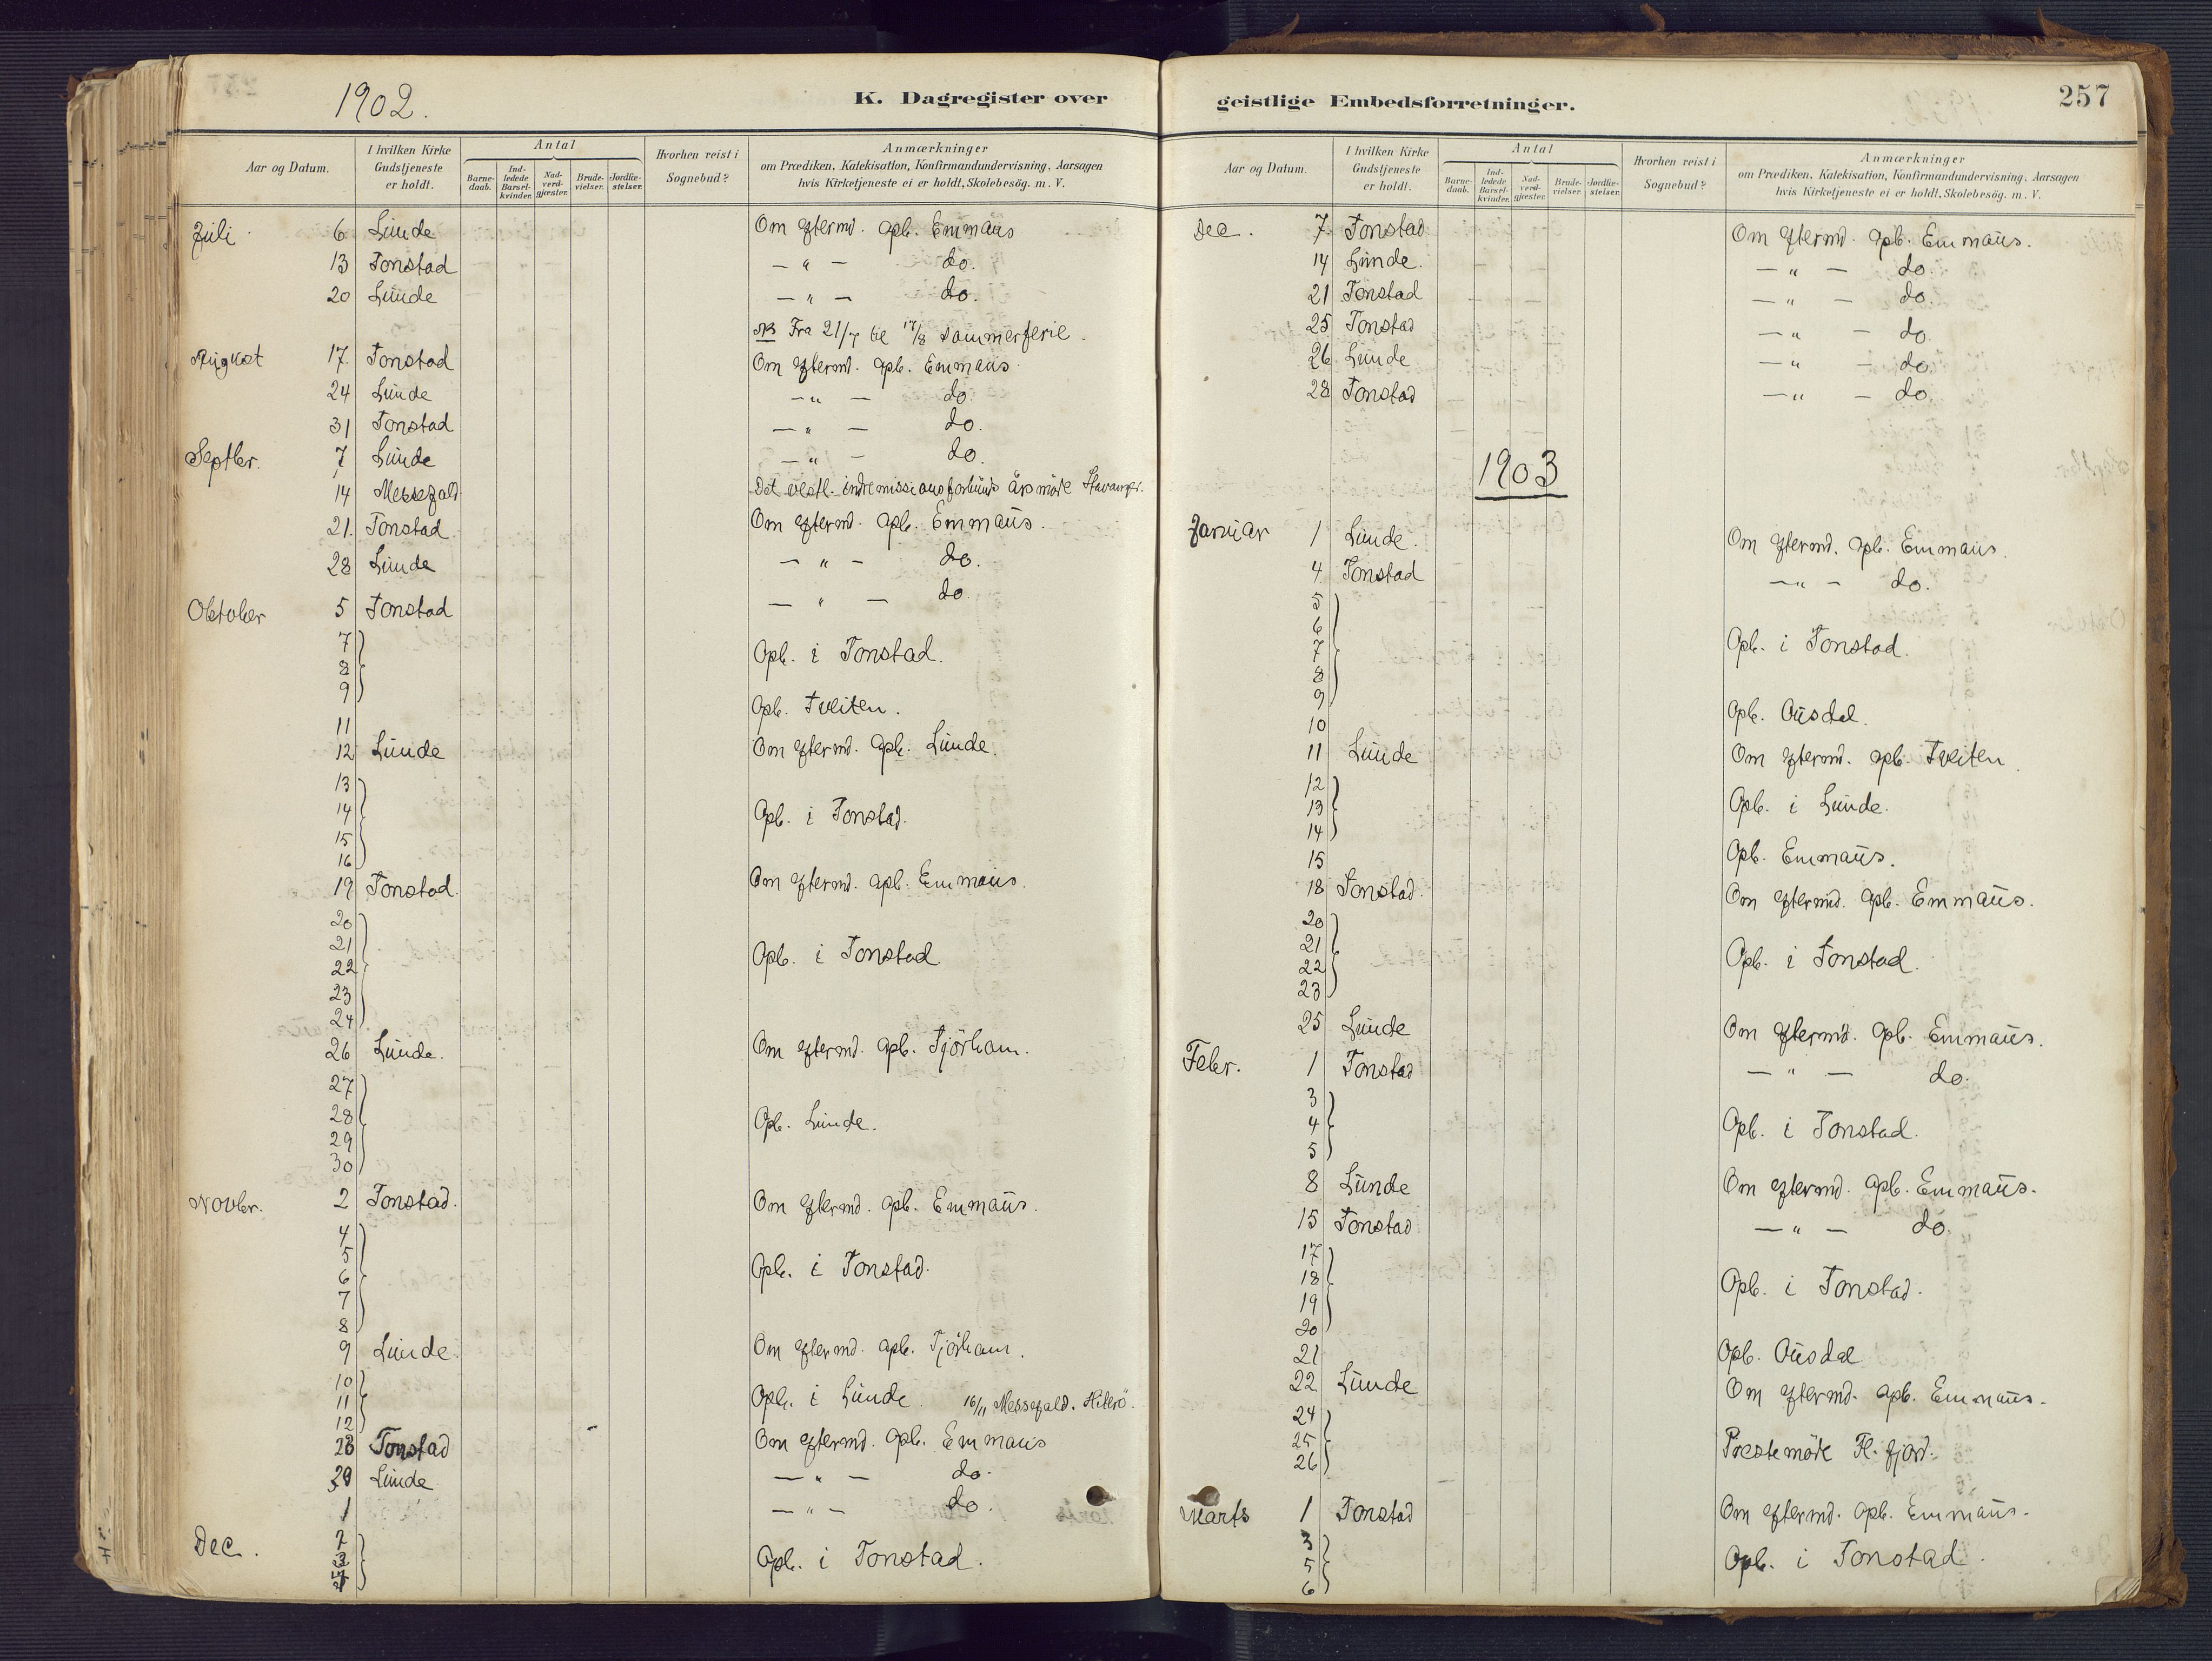 1902.
K. Dagregister over
Aar og Datum.
I hvilken Kirke Gudstjeneste er holdt.
Antal
Barne-daab.
Ind-ledede Barsel-kvinder.
Nad-verd-gjæster.
Brude-vielser.
Jordfæ-stelser.
Hvorhen reist i Sognebud?
Anmærkninger
om Prædiken, Katekisation, Konfirmandundervisning, Aarsagen
hvis Kirketjeneste ei er holdt, Skolebesög. m. V.
Juli 6 Lunde Om eftermd. opb. Emmaus
13 Tonstad — " — do.
20 Lunde — " — do.
NB Fra 21/7 til 17/8 Sommerferie.
August 17 Tonstad Om eftermd. opb. Emmaus
24 Lunde — " — do.
31 Tonstad — " — do.
Septbr. 7 Lunde — " — do.
14 Messefald Det vestl. indremissionsforbunds årsmöte Stavanger.
21. Tonstad Om eftermd. opb. Emmaus.
28 Lunde — " — do.
Oktober 5 Tonstad — " — do.
7
8 Opb. i Tonstad.
9
11 Opb. Tveiten.
12 Lunde Om eftermd. opb. Lunde.
13
14 Opb. i Tonstad.
15
16
19 Tonstad. Om eftermd. opb. Emmaus.
20
21
22 Opb. i Tonstad
23
24
26 Lunde. Om eftermd. opb. Tjörham.
27
28 Opb. Lunde.
29
30
Novbr. 2 Tonstad. Om eftermd. opb. Emmaus.
4
5
6 Opb. i Tonstad.
7
8
9 Lunde. Om eftermd. opb. Tjörham.
10
11 Opb. i Lunde. 16/11 Messefald. Hiterö.
12
23 Tonstad Om eftermd. opb. Emmaus
30 Lunde — " — do.
1 — " — do.
Dec. 2
3 Opb. i Tonstad.
geistlige Embedsforretninger.
257
Aar og Datum.
I hvilken Kirke Gudstjeneste er holdt.
Antal
Barne-daab.
Ind-ledede Barsel-kvinder.
Nad-verd-gjæster.
Brude-vielser.
Jordfæ-stelser.
Hvorhen reist i Sognebud?
Anmærkninger
om Prædiken, Katekisation, Konfirmandundervisning, Aarsagen
hvis Kirketjeneste ei er holdt, Skolebesög. m. V.
Dec. 7 Tonstad Om eftermd. opb. Emmaus.
14 Lunde. — " — do.
21 Tonstad — " — do.
25 Tonstad — " — do.
26 Lunde — " — do.
28 Tonstad — " — do.
1903
Januar 1 Lunde. Om eftermd. opb. Emmaus.
4 Tonstad — " — do.
5
6
7 Opb. i Tonstad.
8
9
10 Opb. Ousdal.
11 Lunde Om eftermd. opb. Tveiten.
12
13 Opb. i Lunde.
14
15 Opb. Emmaus.
18 Tonstad. Om eftermd. opb. Emmaus.
20
21 Opb. i Tonstad.
22
23
25 Lunde Om eftermd. opb. Emmaus.
Febr. 1 Tonstad — " — do.
3
4 Opb. i Tonstad.
5
8 Lunde Om eftermd. opb. Emmaus.
15 Tonstad — " — do.
17
18 Opb. i Tonstad.
19
20
21 Opb. Ousdal
22 Lunde Om eftermd. opb. Emmaus.
24
25 Prestemöde Fl. fjord.
26
Marts 1 Tonstad Om eftermd. opb. Emmaus.
3
5 Opb. i Tonstad.
6